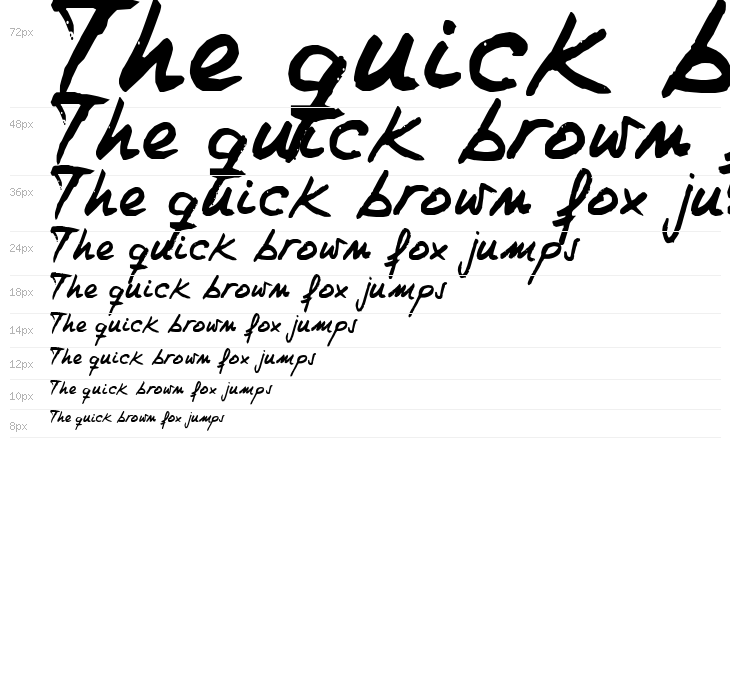 72px The quick b
48px The quick brown
36px The quick brown fox ju
24px The quick brown fox jumps
18px The quick brown fox jumps
14px The quick brown fox jumps
12px The quick brown fox jumps
10px The quick brown fox jumps
8px The quick brown fox jumps